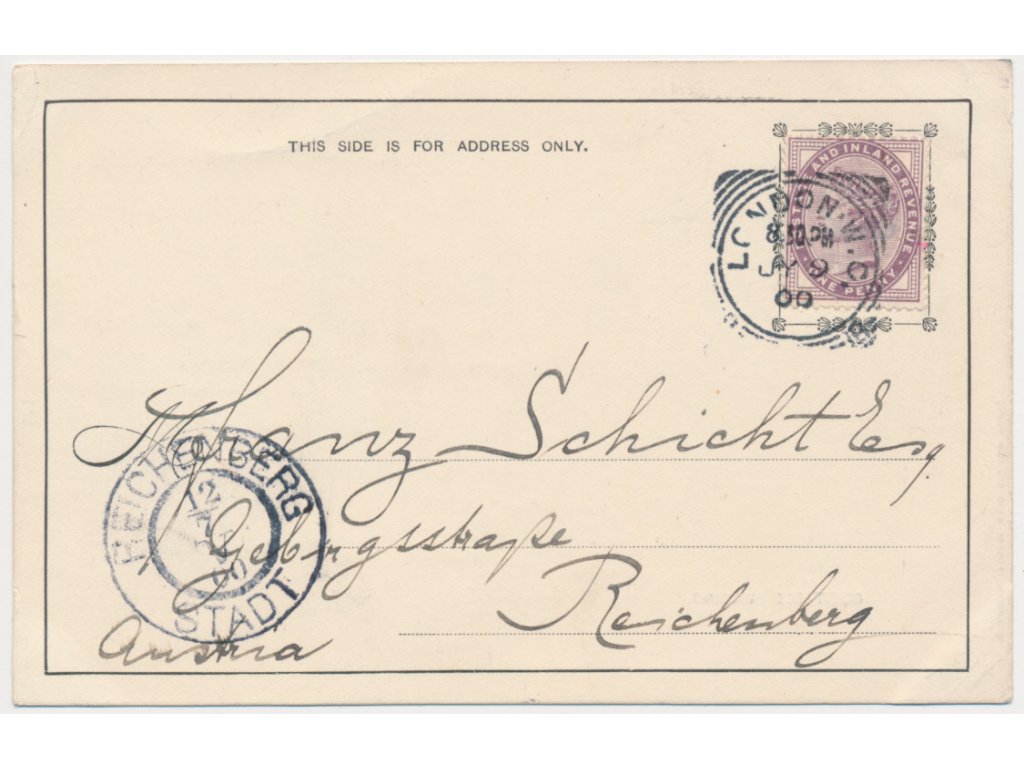 THIS SIDE IS FOR ADDRESS ONLY.
POSTAGE AND INLAND REVENUE
ONE PENNY
LONDON.W.C
8.30PM
JY 9
00
Franz Schicht Esq.
Gebirgsstraße
Reichenberg
Austria
REICHENBERG
12
7
00
STADT